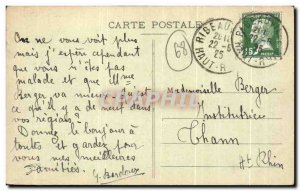 CARTE POSTALE
On ne vous voit plus
mais j'espère cependant
que vous n'êtes pas
malade et que Mme
Berger va mieux
ce qu'il y a de neuf dans
vos régions?
Donnez le bonjour à
toutes et gardez pour
vous mes meilleures
amitiés.
68
RIBEAU
22
25
HAUT-R
15
Mademoiselle Berger
Institutrice
Thann
Ht Rhin